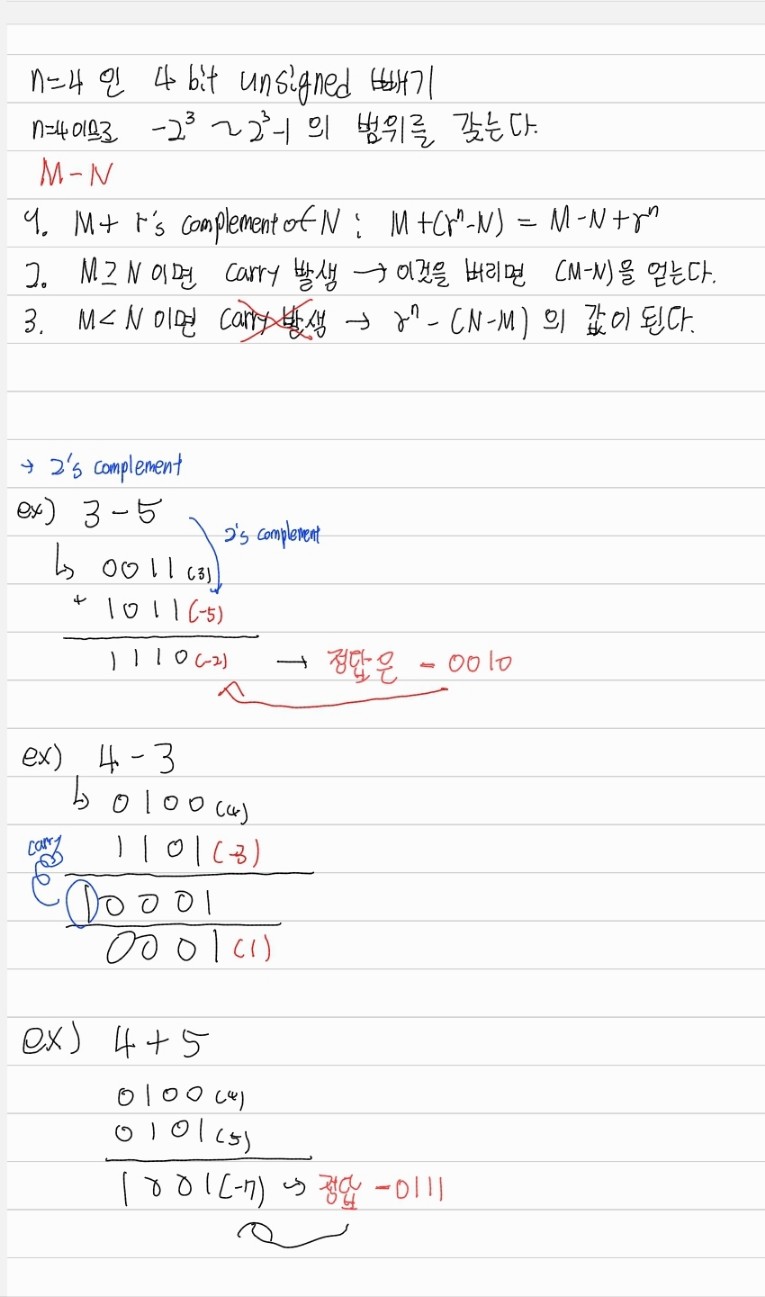 n=4 인 4 bit unsigned 빼기
n=4이므로 -2³ ~ 2³-1 의 범위를 갖는다.
M-N
1. M + r's complement of N : M+(rⁿ-N) = M-N+rⁿ
2. M≥N 이면 carry 발생 → 이것을 버리면 (M-N)을 얻는다.
3. M<N 이면 carry 발생 → rⁿ-(N-M) 의 값이 된다.
→ 2's complement
ex) 3-5
2's complement
↳ 0011 (3)
+ 1011 (-5)
1110 (-2) → 정답은 -0010
ex) 4-3
↳ 0100 (4)
carry 1101 (-3)
10001
0001 (1)
ex) 4+5
0100 (4)
0101 (5)
1001 (-7) → 정답 -0111